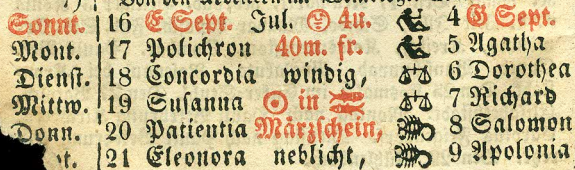 Sonnt. 16 E Sept. Jul. 4u. 4 G Sept.
Mont. 17 Polichron 40m. fr. 5 Agatha
Dienst. 18 Concordia windig, 6 Dorothea
Mittw. 19 Susanna ☉ in ♓ 7 Richard
Donn. 20 Patientia Märzschein, 8 Salomon
t. 21 Eleonora neblicht, 9 Apolonia